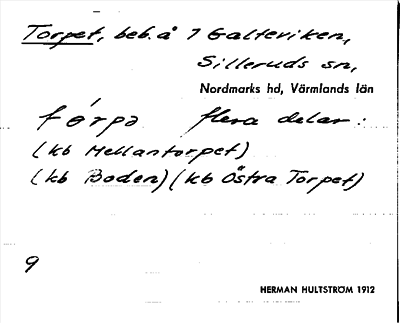 Torpet, beb. å 7 Galteviken,
Silleruds sn,
Nordmarks hd, Värmlands län
tórpə flera delar:
(kb Mellantorpet)
(kb Boden) (kb Östra Torpet)
9
HERMAN HULTSTRÖM 1912